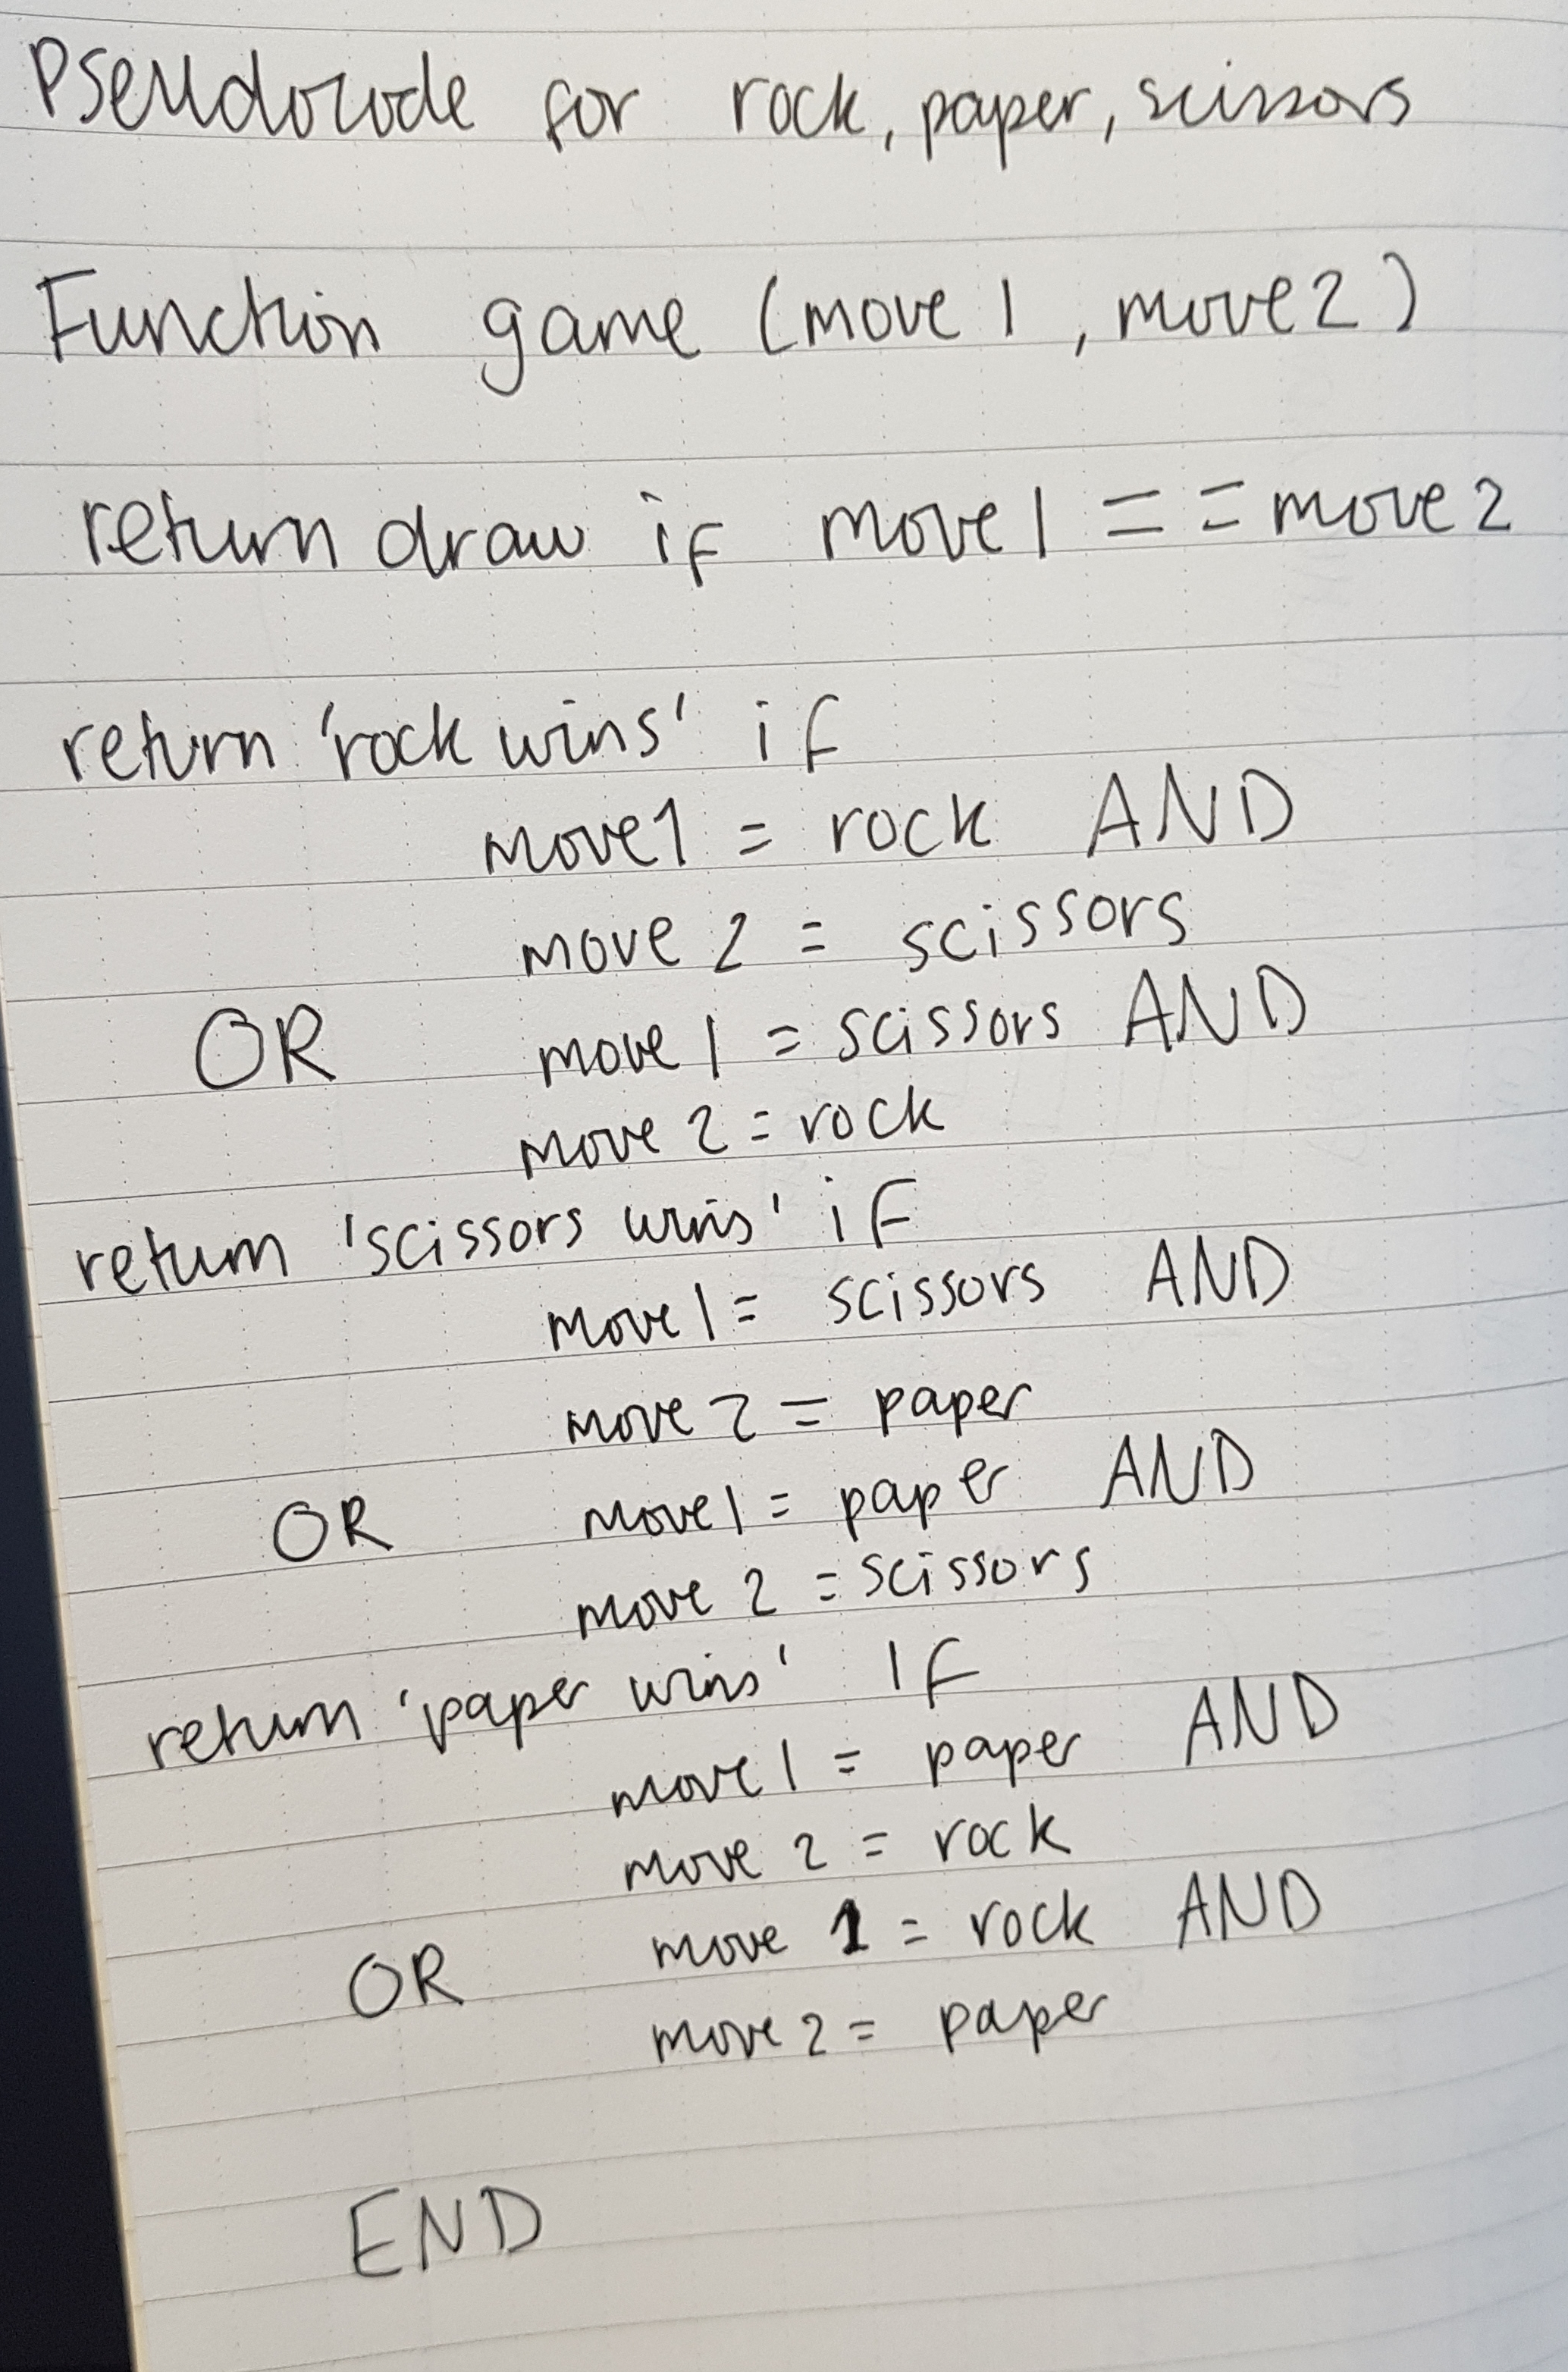 Pseudocode for rock, paper, scissors
Function game (move 1, move 2)
return draw if move 1 == move 2
return 'rock wins' if
move 1 = rock AND
move 2 = scissors
OR move 1 = scissors AND
move 2 = rock
return 'scissors wins' if
move 1 = scissors AND
move 2 = paper
OR move 1 = paper AND
move 2 = scissors
return 'paper wins' if
move 1 = paper AND
move 2 = rock
OR move 1 = rock AND
move 2 = paper
END